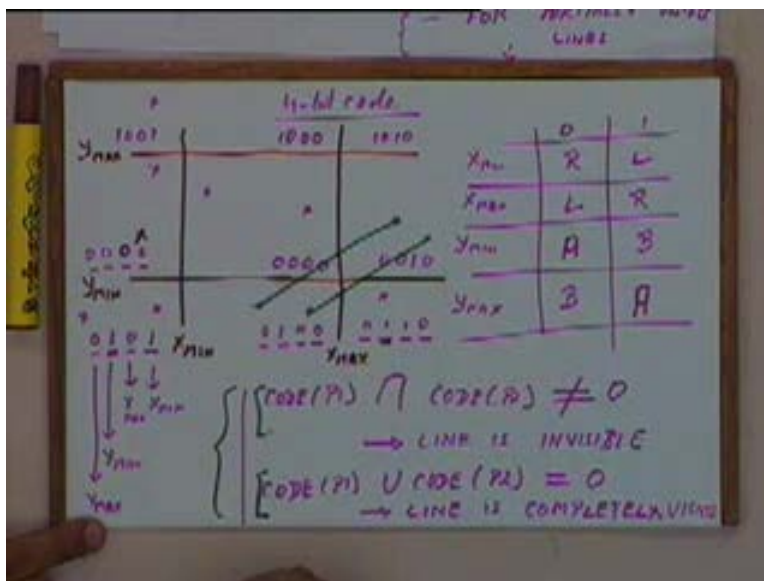 FOR PARTIALLY
LINES
4-bit code
1001 1000 1010
YMAX
0000 0010
YMIN
0101 XMIN 0100 XMAX 0110
XMAX XMIN
YMIN
YMAX
0 1
XMIN R L
XMAX L R
YMIN A B
YMAX B A
CODE(P1) ∩ CODE(P2) ≠ 0
→ LINE IS INVISIBLE
CODE(P1) ∪ CODE(P2) = 0
→ LINE IS COMPLETELY